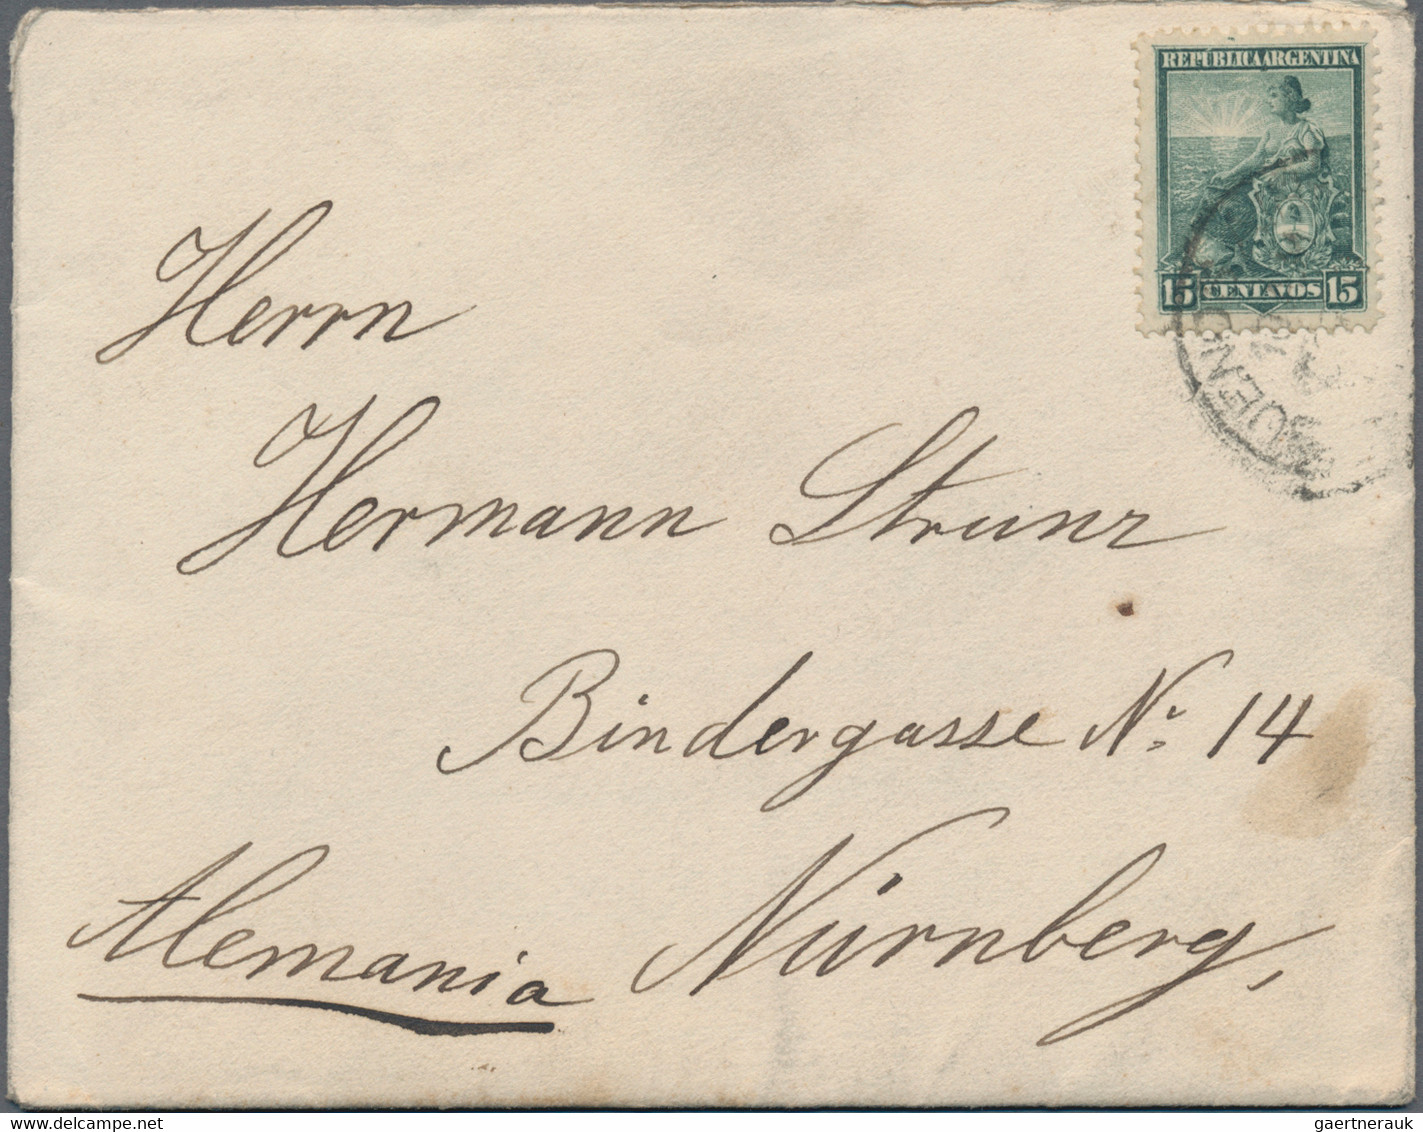 REPÚBLICA ARGENTINA
15 CENTAVOS 15
Herrn
Hermann Strunz
Bindergasse No. 14
Alemania Nürnberg,
delcampe.net
gaertnerauk